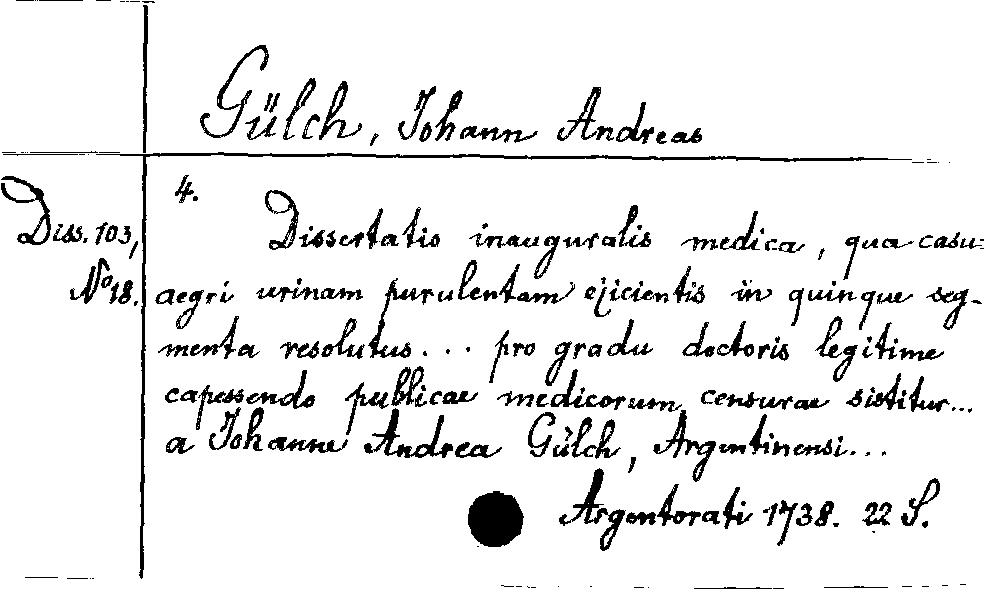 Gülch, Johann Andreas
4.
Diss. 103,
No 18.
Dissertatio inauguralis medica, qua casu=
aegri urinam purulentam ejicientis in quinque seg-
menta resolutus... pro gradu doctoris legitime
capessendo publicae medicorum censurae sistitur...
a Johanne Andrea Gülch, Argentinensi...
Argentorati 1738. 22 S.